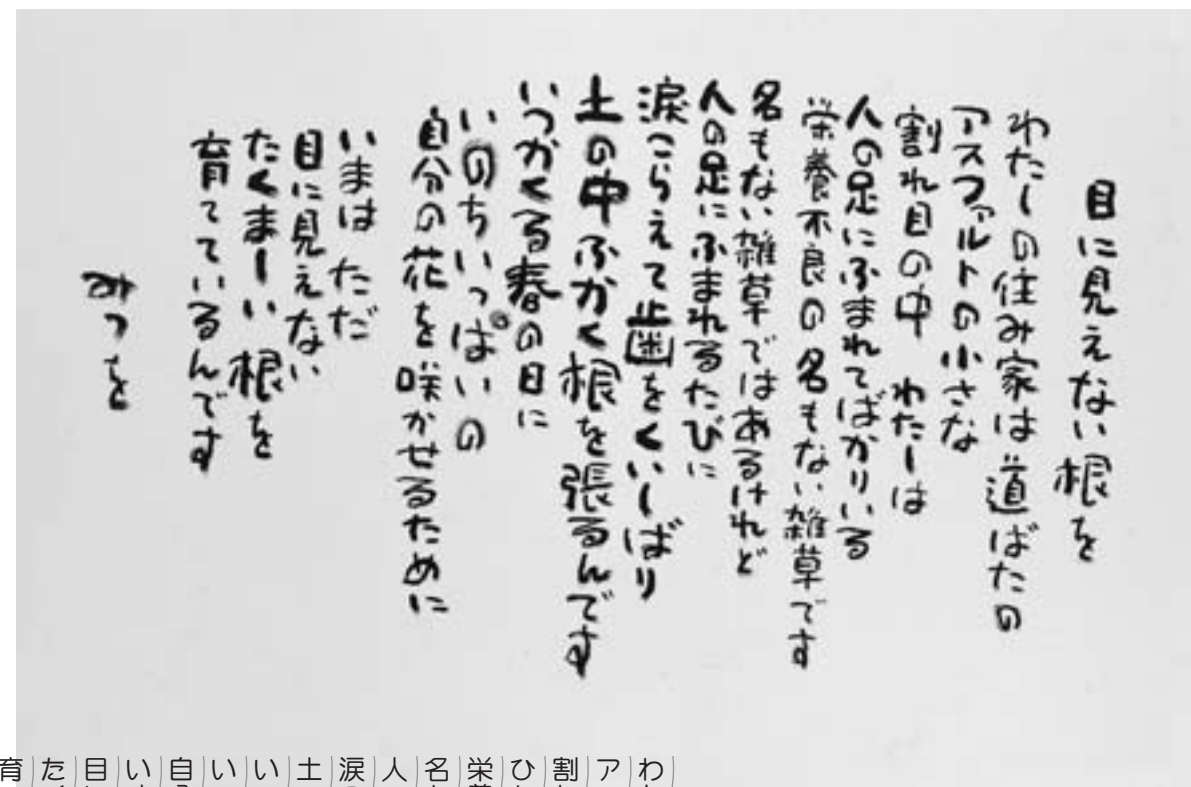 目に見えない根を
わたしの住み家は道ばたの
アスファルトの小さな
割れ目の中 わたしは
人の足にふまれてばかりいる
栄養不良の名もない雑草です
名もない雑草ではあるけれど
人の足にふまれるたびに
涙こらえて歯をくいしばり
土の中ふかく根を張るんです
いつかくる春の日に
いのちいっぱいの
自分の花を咲かせるために
いまはただ
目に見えない
たくましい根を
育てているんです
みつを
わ
ア
割
ひ
栄
名
人
涙
土
い
い
自
い
目
た
育